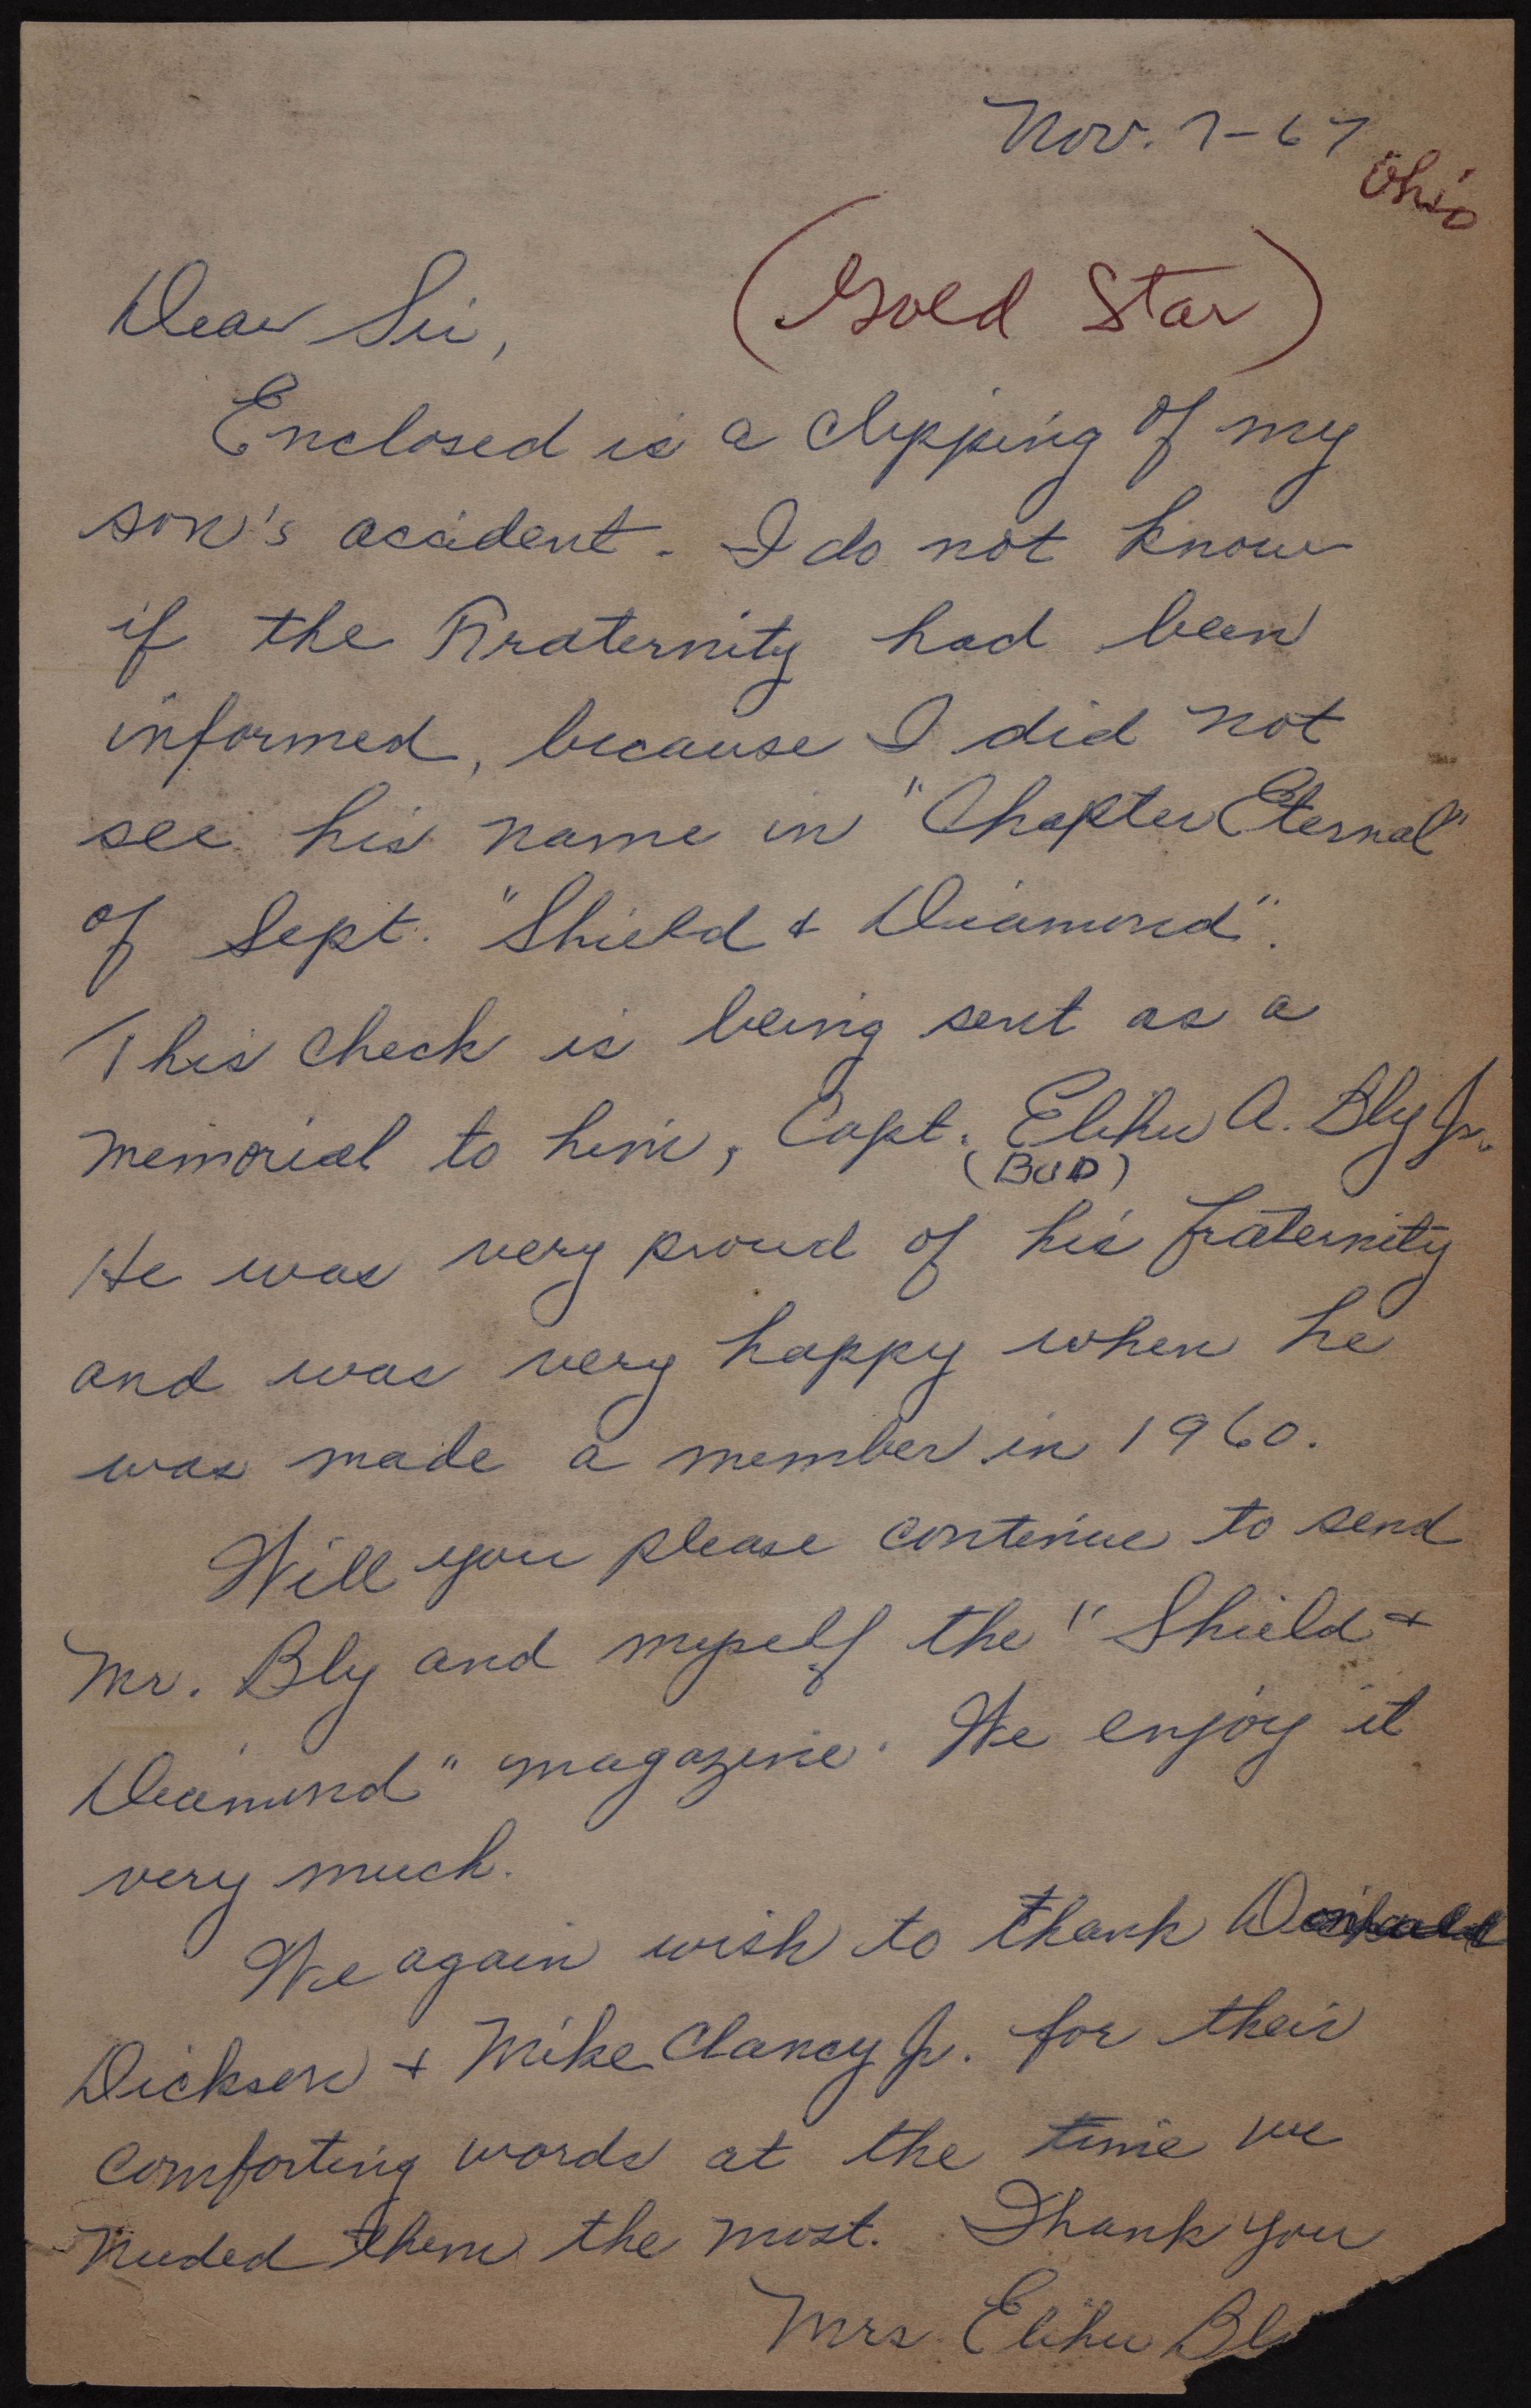 Nov. 7-67
Ohio
(Gold Star)
Dear Sir,
Enclosed is a clipping of my
son's accident. I do not know
if the Fraternity had been
informed, because I did not
see his name in "Chapter Eternal"
of Sept. "Shield & Diamond".
This check is being sent as a
memorial to him, Capt. Elihu A. Bly Jr.
(BUD)
He was very proud of his fraternity
and was very happy when he
was made a member in 1960.
Will you please continue to send
Mr. Bly and myself the "Shield &
Diamond" magazine. We enjoy it
very much.
We again wish to thank
Dickson & Mike Clancy Jr. for their
comforting words at the time we
needed them the most. Thank you
Mrs. Elihu Bl